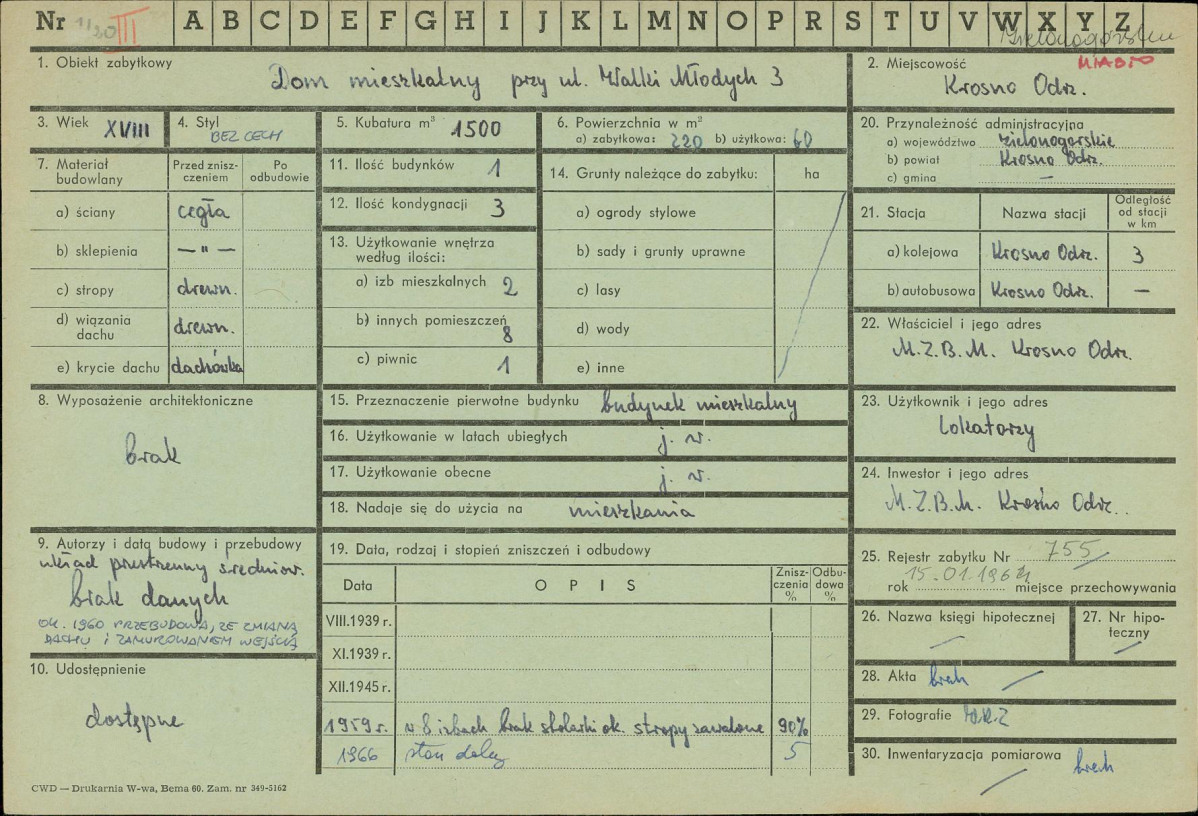 Nr 11/20 III A B C D E F G H I J K L M N O P R S T U V W X Y Z
Zielonogórskie
1. Obiekt zabytkowy Dom mieszkalny przy ul. Walki Młodych 3
2. Miejscowość MIASTO
Krosno Odrz.
3. Wiek XVIII
4. Styl BEZ CECH
5. Kubatura m³ 1500
6. Powierzchnia w m²
a) zabytkowa: 220 b) użytkowa: 60
20. Przynależność administracyjna
a) województwo zielonogórskie
b) powiat Krosno Odrz.
c) gmina —
7. Materiał budowlany
Przed zniszczeniem
Po odbudowie
a) ściany cegła
b) sklepienia — " —
c) stropy drewn.
d) wiązania dachu drewn.
e) krycie dachu dachówka
11. Ilość budynków 1
12. Ilość kondygnacji 3
13. Użytkowanie wnętrza
według ilości:
a) izb mieszkalnych 2
b) innych pomieszczeń 8
c) piwnic 1
14. Grunty należące do zabytku: ha
a) ogrody stylowe
b) sady i grunty uprawne
c) lasy
d) wody
e) inne
21. Stacja Nazwa stacji Odległość od stacji w km
a) kolejowa Krosno Odrz. 3
b) autobusowa Krosno Odrz. —
22. Właściciel i jego adres
M.Z.B.M. Krosno Odrz.
8. Wyposażenie architektoniczne
brak
15. Przeznaczenie pierwotne budynku budynek mieszkalny
16. Użytkowanie w latach ubiegłych j. w.
17. Użytkowanie obecne j. w.
18. Nadaje się do użycia na mieszkania
23. Użytkownik i jego adres
lokatorzy
24. Inwestor i jego adres
M.Z.B.M. Krosno Odrz.
9. Autorzy i data budowy i przebudowy
układ przestrzenny średniow.
brak danych
OK. 1960 PRZEBUDOWA, ZE ZMIANĄ
DACHU I ZAMUROWANIEM WEJŚCIA
10. Udostępnienie
dostępne
19. Data, rodzaj i stopień zniszczeń i odbudowy
Data OPIS Zniszczenia % Odbudowa %
VIII.1939 r.
XI.1939 r.
XII.1945 r.
1959 r. w 8 izbach brak stolarki ok. stropy zawalone 90%
1966 stan dobry 5
25. Rejestr zabytku Nr 755
rok 15.01.1964 miejsce przechowywania
26. Nazwa księgi hipotecznej —
27. Nr hipoteczny —
28. Akta brak
29. Fotografie
30. Inwentaryzacja pomiarowa brak
CWD — Drukarnia W-wa, Bema 60. Zam. nr 349-5162